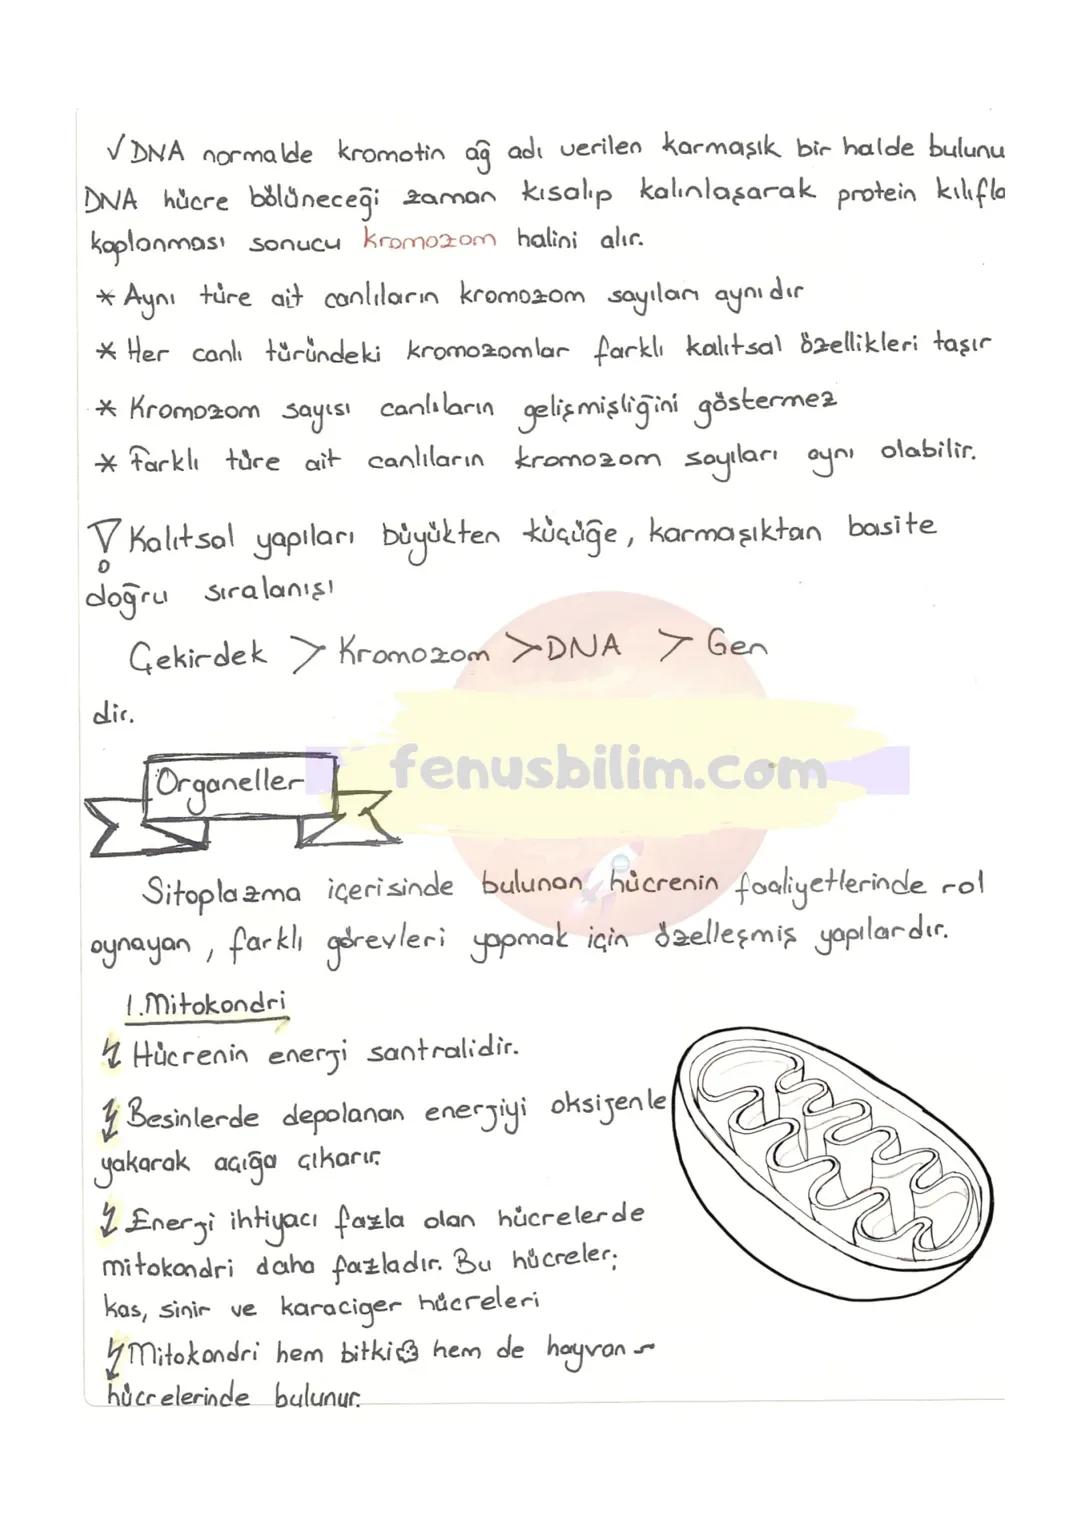 √ DNA normalde kromotin ağ adı verilen karmaşık bir halde bulunu
DNA hücre bölüneceği zaman kısalıp kalınlaşarak protein kılıfla
kaplanması sonucu kromozom halini alır.
* Aynı türe ait canlıların kromozom sayıları aynıdır
* Her canlı türündeki kromozomlar farklı kalıtsal özellikleri taşır
* Kromozom sayısı canlıların gelişmişliğini göstermez
* Farklı türe ait canlıların kromozom sayıları aynı olabilir.
Kalıtsal yapıları büyükten küçüğe, karmaşıktan basite
doğru sıralanışı
Çekirdek > Kromozom > DNA > Gen
dir.
fenusbilim.com
Organeller
Sitoplazma içerisinde bulunan hücrenin faaliyetlerinde rol
oynayan, farklı görevleri yapmak için özelleşmiş yapılardır.
1.Mitokondri
Hücrenin enerji santralidir.
Besinlerde depolanan enerjiyi oksijenle
yakarak açığa çıkarır.
Enerji ihtiyacı fazla olan hücrelerde
mitokondri daha fazladır. Bu hücreler;
kas, sinir ve karaciger hücreleri
Mitokondri hem bitki hem de hayvan
hücrelerinde bulunur.